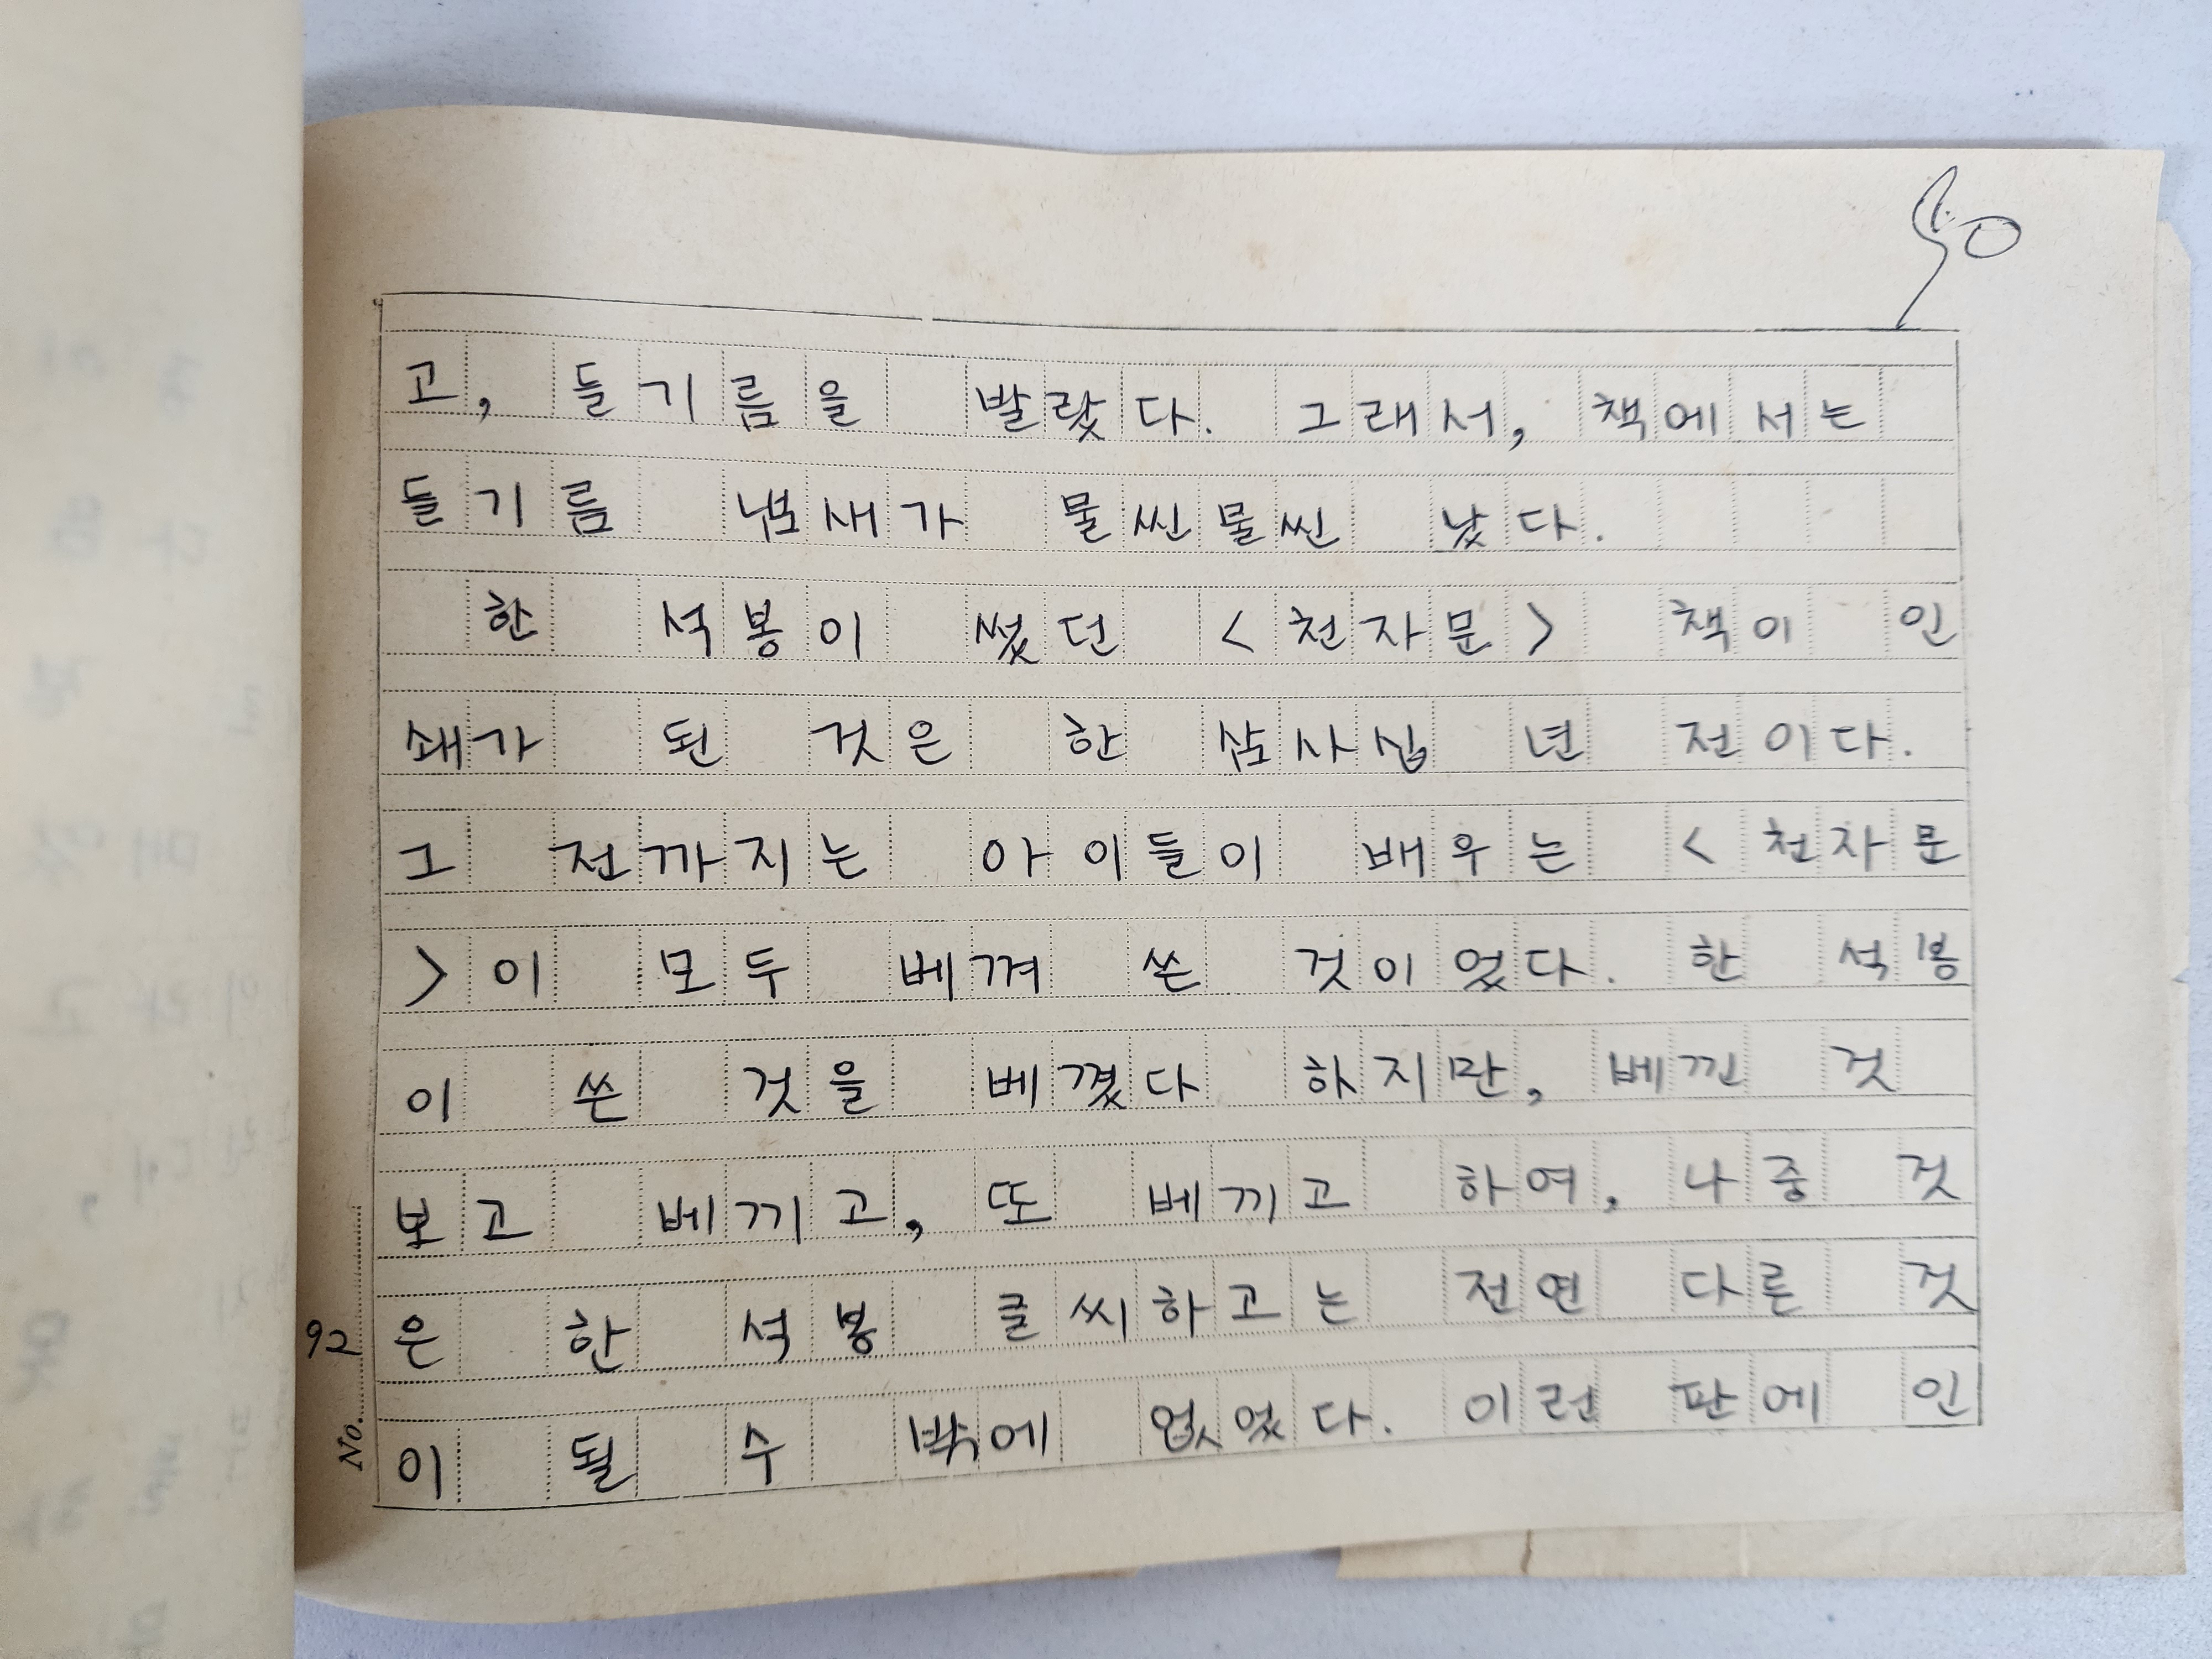 50
고, 들기름을 발랐다. 그래서, 책에서는
들기름 냄새가 물씬물씬 났다.
한 석봉이 썼던 <천자문> 책이 인
쇄가 된 것은 한 삼사십 년 전이다.
그 전까지는 아이들이 배우는 <천자문
>이 모두 베껴 쓴 것이었다. 한 석봉
이 쓴 것을 베꼈다 하지만, 베낀 것
보고 베끼고, 또 베끼고 하여, 나중 것
은 한 석봉 글씨하고는 전연 다른 것
이 될 수 밖에 없었다. 이런 판에 인
No. 92